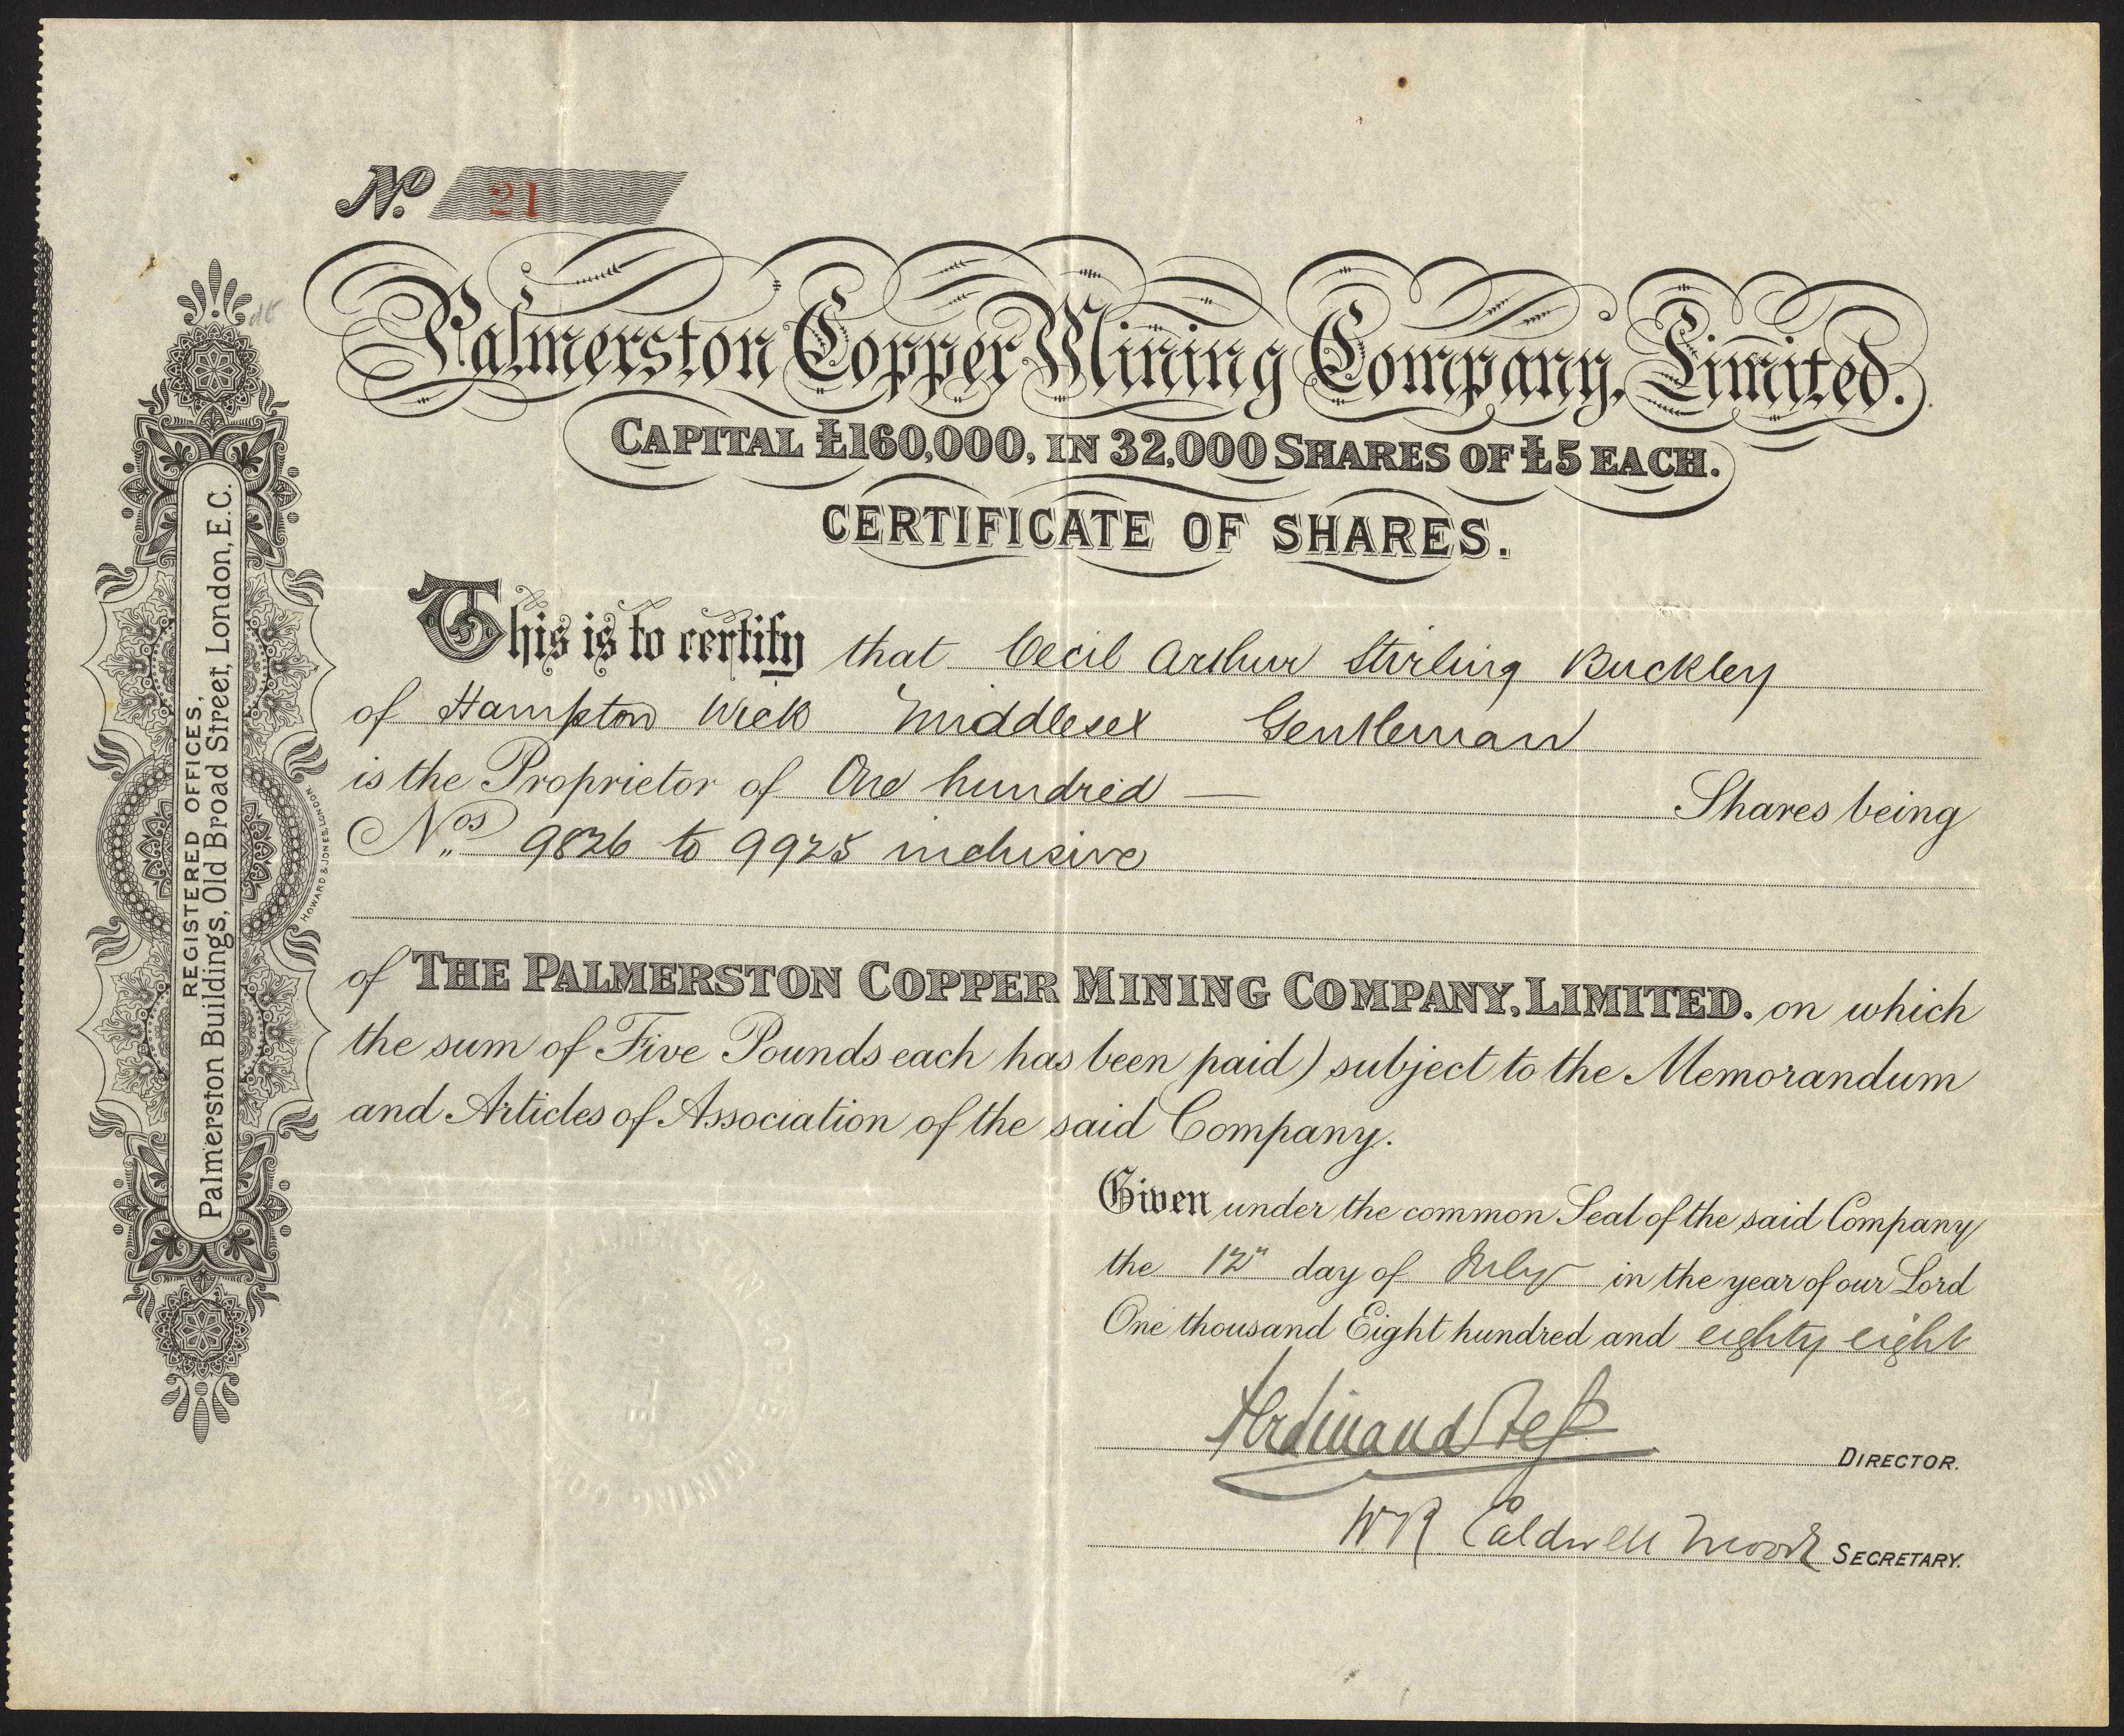 No. 21
Palmerston Copper Mining Company, Limited.
CAPITAL £160,000, IN 32,000 SHARES OF £5 EACH.
CERTIFICATE OF SHARES.
This is to certify that Cecil Arthur Stirling Buckley
of Hampton Wick Middlesex Gentleman
is the Proprietor of One hundred — Shares being
Nos 9826 to 9925 inclusive
of THE PALMERSTON COPPER MINING COMPANY, LIMITED. on which
the sum of Five Pounds each has been paid) subject to the Memorandum
and Articles of Association of the said Company.
Given under the common Seal of the said Company
the 12" day of July in the year of our Lord
One thousand Eight hundred and eighty eight
Ferdinand
DIRECTOR.
W R Caldwell Moore SECRETARY.
REGISTERED OFFICES,
Palmerston Buildings, Old Broad Street, London, E.C.
HOWARD & JONES, LONDON